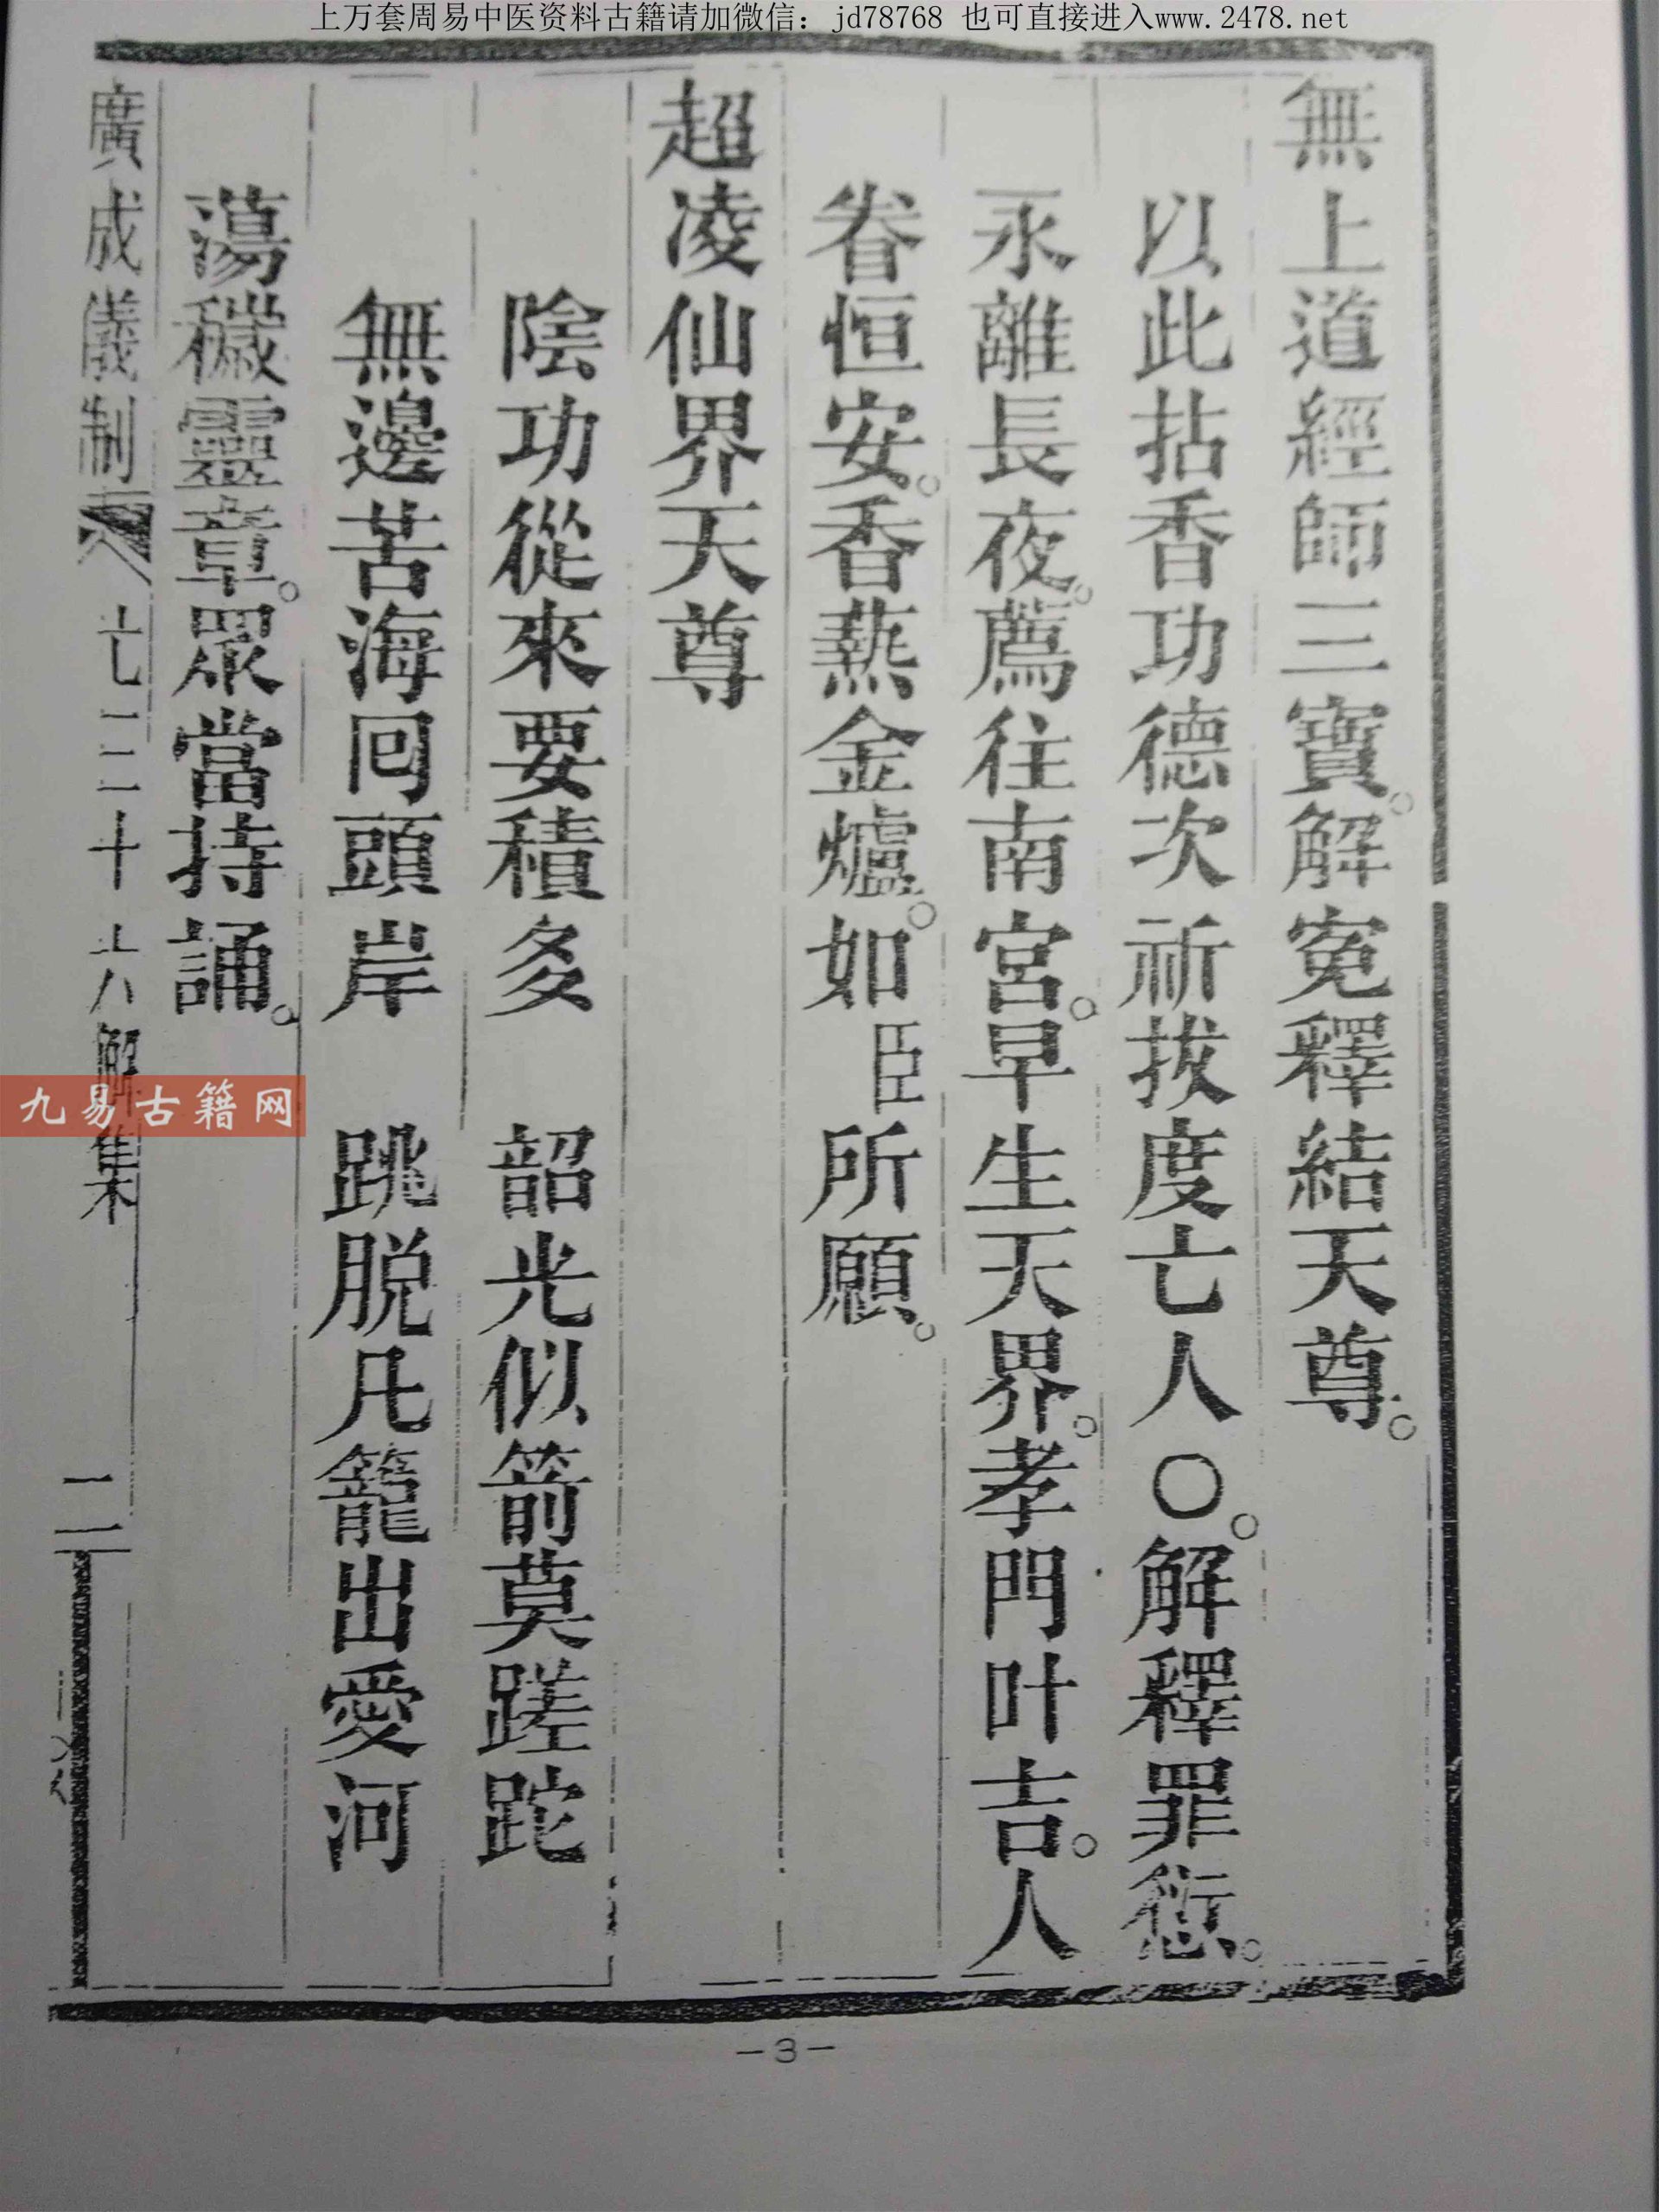 上万套周易中医资料古籍请加微信：jd78768 也可直接进入www.2478.net
無上道經師三寶。解冤釋結天尊。
以此拈香功德次祈拔度亡人○。解釋罪愆。
永離長夜。薦往南宮。早生天界。孝門叶吉。人
眷恒安。香爇金爐。如臣所願。
超凌仙界天尊
陰功從來要積多 韶光似箭莫蹉跎
無邊苦海回頭岸 跳脱凡籠出愛河
蕩穢靈章。眾當持誦。
廣成儀制
集
二
九易古籍网
-3-